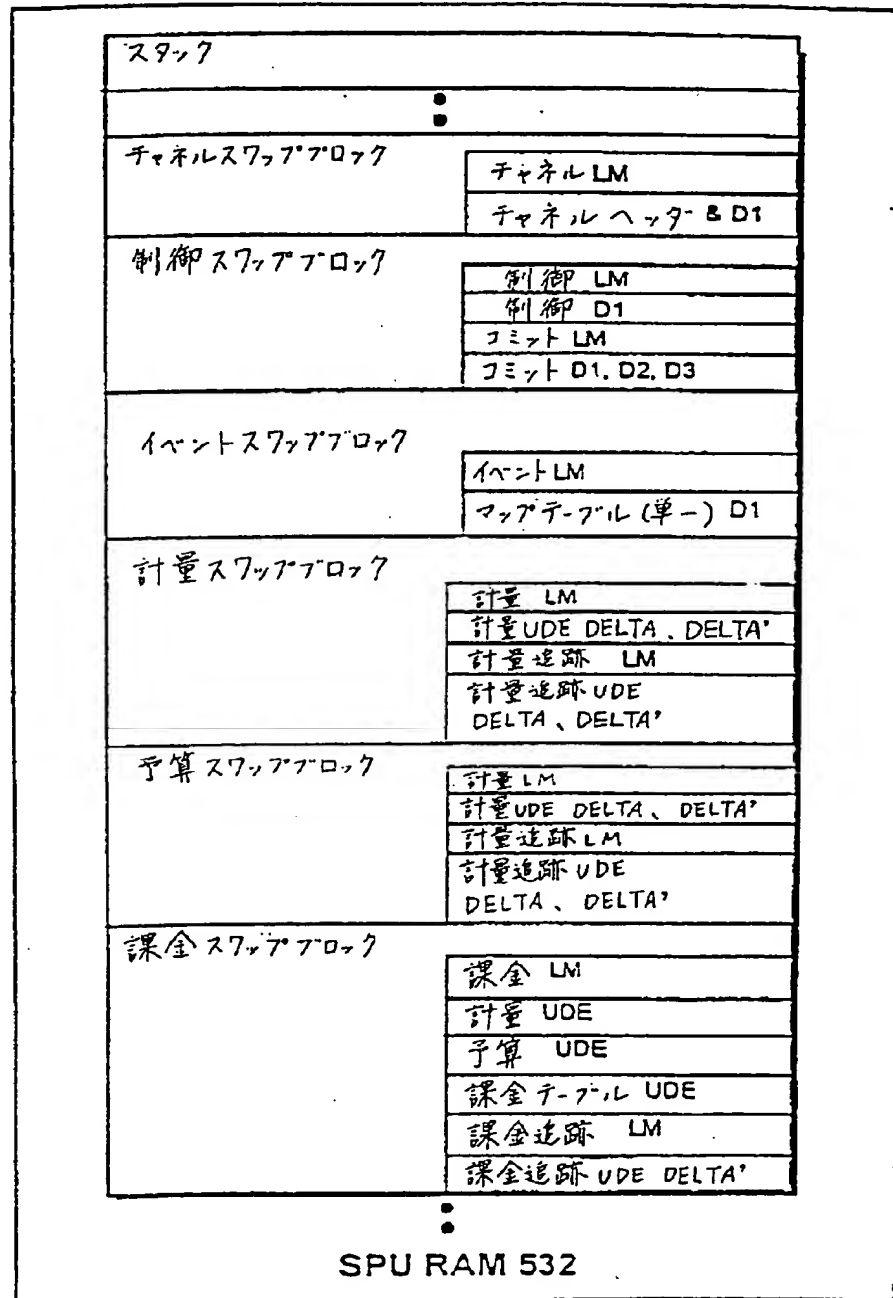 スタック
チャネルスワップブロック
チャネル LM
チャネル ヘッダー & D1
制御 スワップブロック
制御 LM
制御 D1
コミット LM
コミット D1, D2, D3
イベントスワップブロック
イベント LM
マップテーブル (単一) D1
計量スワップブロック
計量 LM
計量 UDE DELTA、DELTA'
計量追跡 LM
計量追跡 UDE
DELTA、DELTA'
予算スワップブロック
計量 LM
計量 UDE DELTA、DELTA'
計量追跡 LM
計量追跡 UDE
DELTA、DELTA'
課金スワップブロック
課金 LM
計量 UDE
予算 UDE
課金テーブル UDE
課金追跡 LM
課金追跡 UDE DELTA'
SPU RAM 532